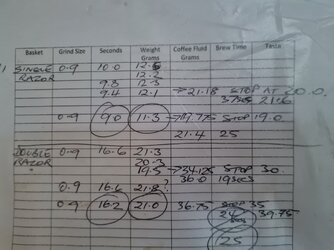 Basket Grind Size Seconds Weight Grams Coffee Fluid Grams Brew Time Taste
SINGLE 0.9 10.0 12.6
RAZOR 12.2
9.8 12.3
9.4 12.1 →21.18 STOP AT 20.0.
37secs 21.6
0.9 9.0 11.3 STOP 19.0
21.4 25
DOUBLE 0.9 16.6 21.3
RAZOR 20.3
" 19.5 →34.125 STOP 30.
36.0 19secs
0.9 16.6 21.8?
0.9 16.2 21.0 36.75 STOP 35
24 39.75
secs
25